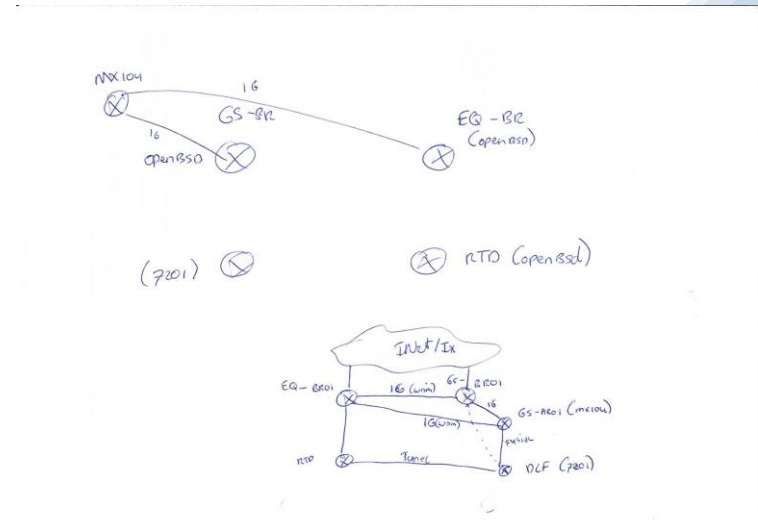 MX104
1G
GS-BR
1G
openBSD
EQ-BR
(openBSD)
(7201)
RTD (openBSd)
INet/Ix
EQ-BR01
1G (wnm)
GS-
BR01
1G
1G(wnm)
GS-AR01 (mx104)
RTD
Tunnel
DCF (7201)